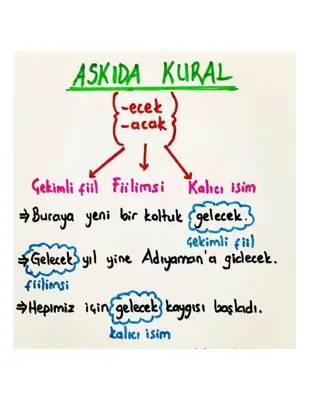 ASKIDA KURAL
-ecek
-acak
Çekimli fiil Fiilimsi Kalıcı isim
⇒Buraya yeni bir koltuk gelecek.
çekimli fiil
⇒Gelecek yıl yine Adıyaman'a gidecek.
fiilimsi
⇒Hepimiz için gelecek kaygısı başladı.
kalıcı isim